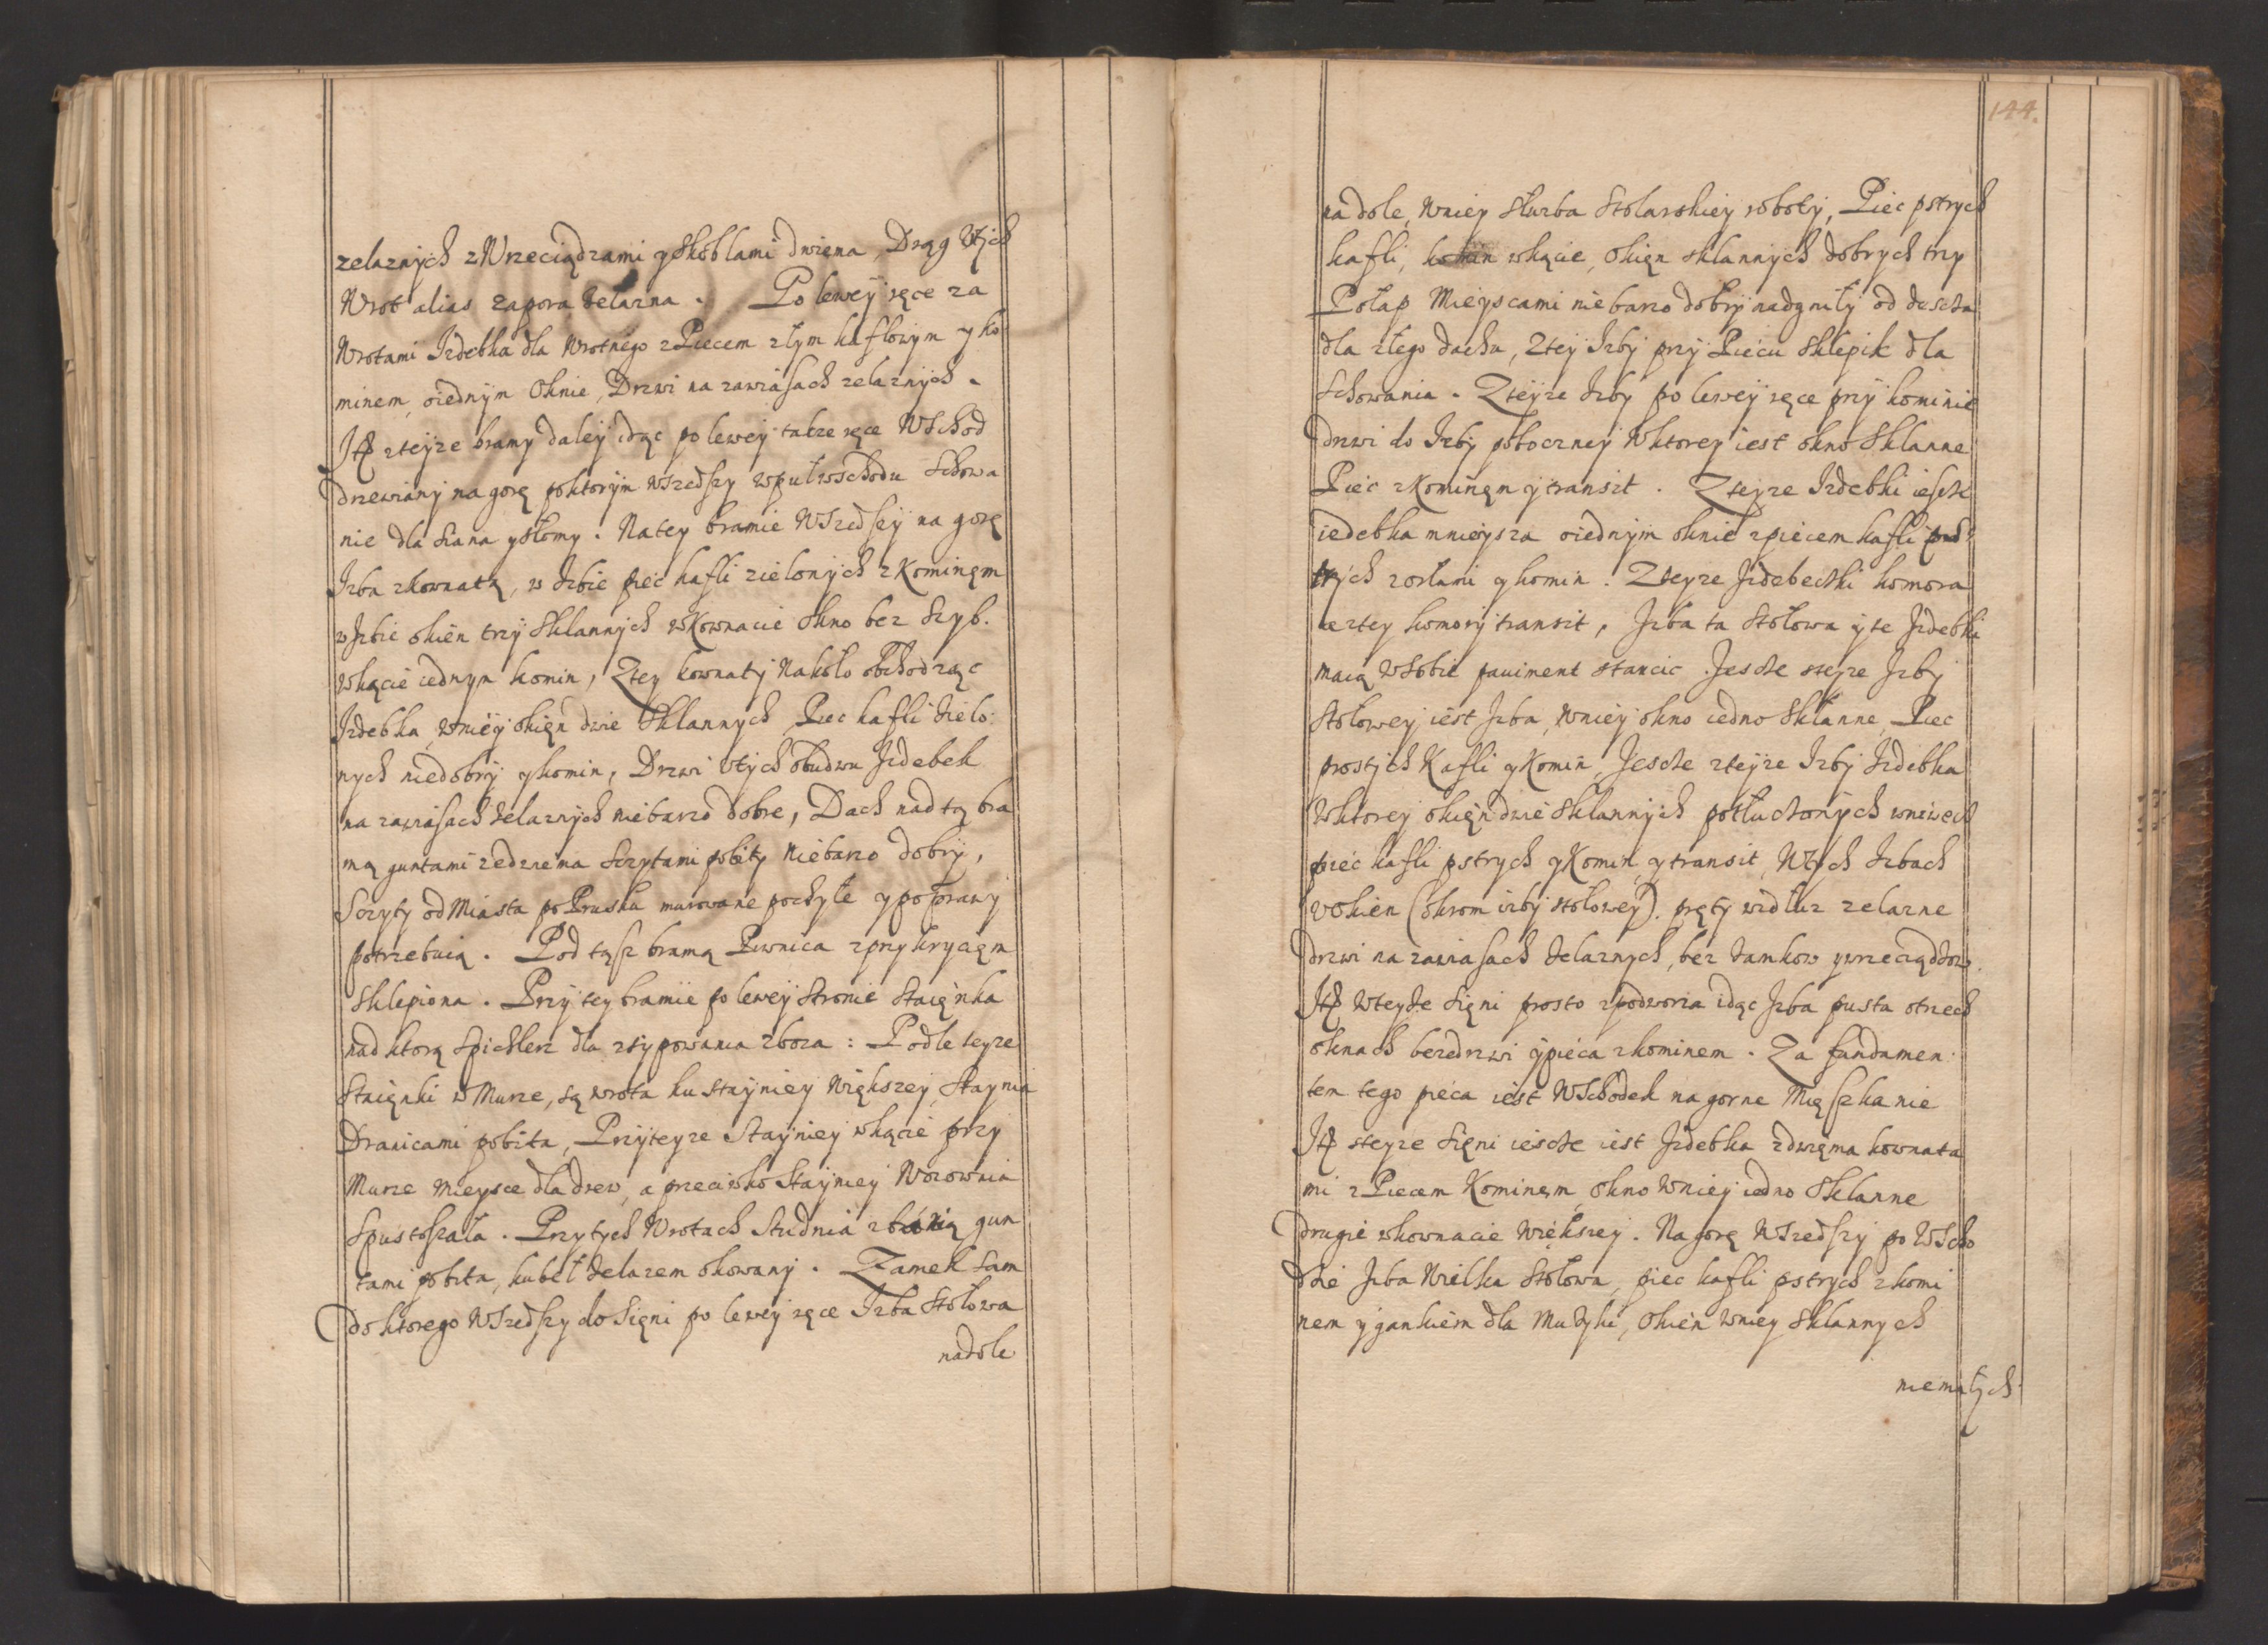 zelaznych z Wrzeciądzami y Skoblami dwiema, Drąg v tych
Wrot alias zapora zelazna. Po lewey ręce za
Wrotami Izdebka dla Wrotnego z Piecem złym kaflowym y ko
minem, o iednym Oknie, Drzwi na zawiasach zelaznych.
Itẽ z teyze bramy daley idąc po lewey takze ręce Wschod
drzewiany na gorę po ktorym Wszedszy w puł wschodu Schowa
nie dla Siana y słomy. Na tey bramie Wszedszy na gorę
Izba z kownatą, w Izbie piec kafli zielonych z Kominęm
w Izbie okien trzy Sklannych w Kownacie Okno bez Szyb.
w kącie iednym komin, Z tey kownaty Nakoło obchodząc
Izdebka, w niey okięn dwie Sklannych Piec kafli zielo:
nych niedobry y komin, Drzwi v tych obudwu Izdebek
na zawiasach żelaznych niebarzo dobre, Dach nad tą bra
mą guntami ze dwiema Sczytami pobity niebarzo dobry,
Sczyty od Miasta po Prusku murowane pochyłe y poprawy
potrzebuią. Pod tąsz bramą Piwnica z przykrycięm
Sklepiona. Przy tey bramie po lewey Stronie Staięnka
nad ktorą Spichlerz dla zsypowania zboza: Podle teyze
Staięnki w Murze, są wrota ku stayniey Większey, Staynia
Dranicami pobita, Przy teyze Stayniey w kącie przy
Murze Mieysce dla drew, a przeciwko Stayniey Wozownia
Spustoszała. Przy tych Wrotach Studnia z banią gun
tami pobita, kubeł żelazem okowany. Zamek Sam
do ktorego Wszedszy do Sięni po lewey ręce Izba Stołowa
na dole
144.
na dole, w niey Słuzba Stolarskiey roboty, Piec pstrych
kafli, komin w kącie, Okięn sklannych dobrych trzy
Połap Mieyscami niebarzo dobry nadgniły od deszcza
dla złego dachu, Z tey Izby przy Piecu Sklepik dla
Schowania. Z teyze Izby po lewey ręce przy kominie
drzwi do Izby poboczney w ktorey iest okno Sklanne
Piec z Kominęm y transit. Z teyze Izdebki ieszcze
iedebka mnieysza o iednym oknie z piecem kafli ps
trych z orłami y komin. Z teyze Izdebeczki komora
a z tey komory transit, Izba ta Stołowa y te Izdebki
maią w Sobie pauiment stancic. Jescze z teyze Izby
Stołowey iest Izba, w niey okno iedno Sklanne, Piec
prostych Kafli y Komin, Jescze z teyze Izby Izdebka
w ktorey okięn dwie Sklannych potłuczonych wniwecz
piec kafli pstrych y Komin y transit, W tych Izbach
v Okien (okrom izby stołowey). pręty wzdłuz zelazne
drzwi na zawiasach żelaznych, bez zamkow y wrzeciądzow.
Itẽ w teyże Sięni prosto z podworza idąc Izba pusta o trzech
oknach bez drzwi y pieca z kominem. Za fundamen:
tem tego pieca iest Wschodek na gorne Mięszkanie
Itẽ z teyze Sięni iescze iest Izdebka z dwięma kownata
mi z Piecem Kominęm, okno w niey iedno Sklanne
drugie w kownacie większey. Na gorę Wszedszy po Wscho
dzie Izba Wielka Stołowa, piec kafli pstrych z komi
nem y gankiem dla Muzyki, Okien w niey Sklannych
niemałych